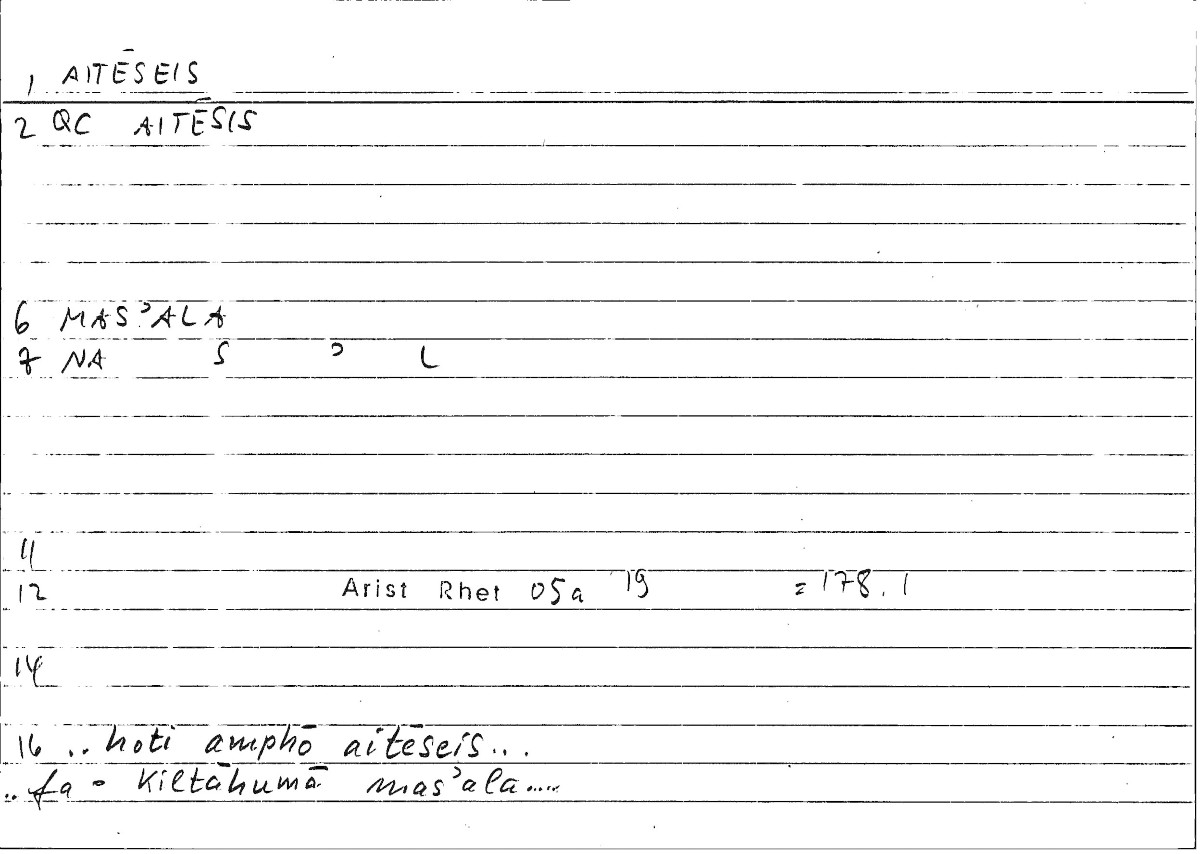 1 AITĒSEIS
2 QC AITĒSIS
6 MASʾALA
7 NA S ʾ L
11
12 Arist Rhet 05a 19 = 178.1
14
16 ..hoti amphō aitēseis...
..fa - kiltāhumā masʾala.....